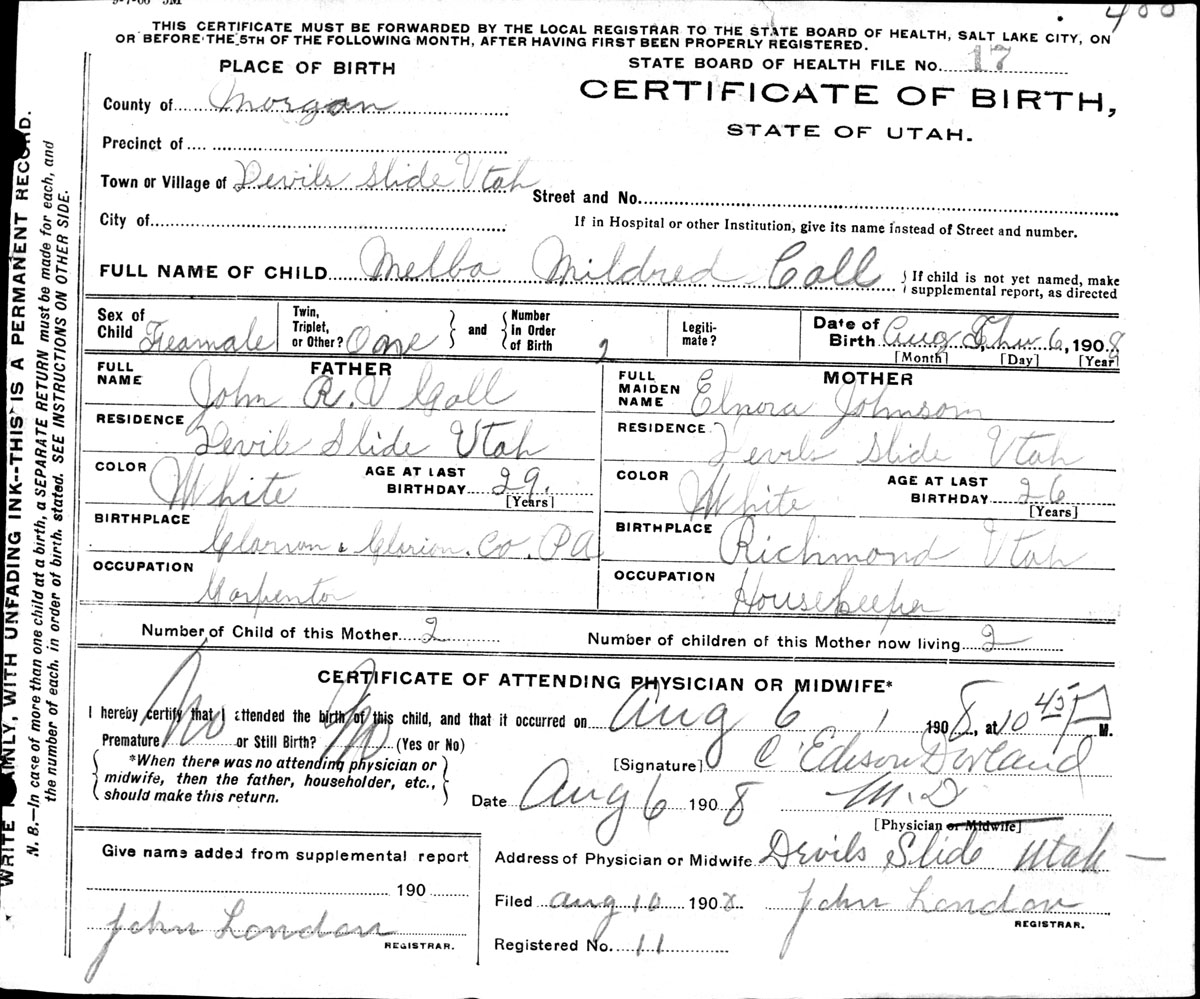 9-7-06 5M
400
THIS CERTIFICATE MUST BE FORWARDED BY THE LOCAL REGISTRAR TO THE STATE BOARD OF HEALTH, SALT LAKE CITY, ON
OR BEFORE THE 5TH OF THE FOLLOWING MONTH, AFTER HAVING FIRST BEEN PROPERLY REGISTERED.
PLACE OF BIRTH
STATE BOARD OF HEALTH FILE No. 17
CERTIFICATE OF BIRTH,
STATE OF UTAH.
County of Morgan
Precinct of
Town or Village of Devils Slide Utah
Street and No.
City of
If in Hospital or other Institution, give its name instead of Street and number.
FULL NAME OF CHILD Melba Mildred Call
} If child is not yet named, make
supplemental report, as directed
Sex of Child Feamale
Twin, Triplet, or Other? One } and { Number in Order of Birth 2
Legiti-mate?
Date of Birth Aug Thu 6, 1908
[Month] [Day] [Year]
FATHER
FULL NAME John R. V Call
RESIDENCE Devils Slide Utah
COLOR White AGE AT LAST BIRTHDAY 29.
[Years]
BIRTHPLACE Clarion Clarion. Co. PA
OCCUPATION Carpentor
MOTHER
FULL MAIDEN NAME Elnora Johnson
RESIDENCE Devils Slide Utah
COLOR White AGE AT LAST BIRTHDAY 26
[Years]
BIRTHPLACE Richmond Utah
OCCUPATION Housekeeper
Number of Child of this Mother 2 Number of children of this Mother now living 2
CERTIFICATE OF ATTENDING PHYSICIAN OR MIDWIFE*
I hereby certify that I attended the birth of this child, and that it occurred on Aug 6 1908, at 10 45 P M.
Premature No or Still Birth? No (Yes or No)
*When there was no attending physician or
midwife, then the father, householder, etc.,
should make this return.
[Signature] C Edison Dorland
Date Aug 6 1908 M.D
[Physician or Midwife]
Give name added from supplemental report
190
John London
REGISTRAR.
Address of Physician or Midwife Devils Slide Utah
Filed Aug 10 1908. John London
REGISTRAR.
Registered No. 11
WRITE PLAINLY, WITH UNFADING INK--THIS IS A PERMANENT RECORD.
N. B.—In case of more than one child at a birth, a SEPARATE RETURN must be made for each, and
the number of each, in order of birth, stated. SEE INSTRUCTIONS ON OTHER SIDE.